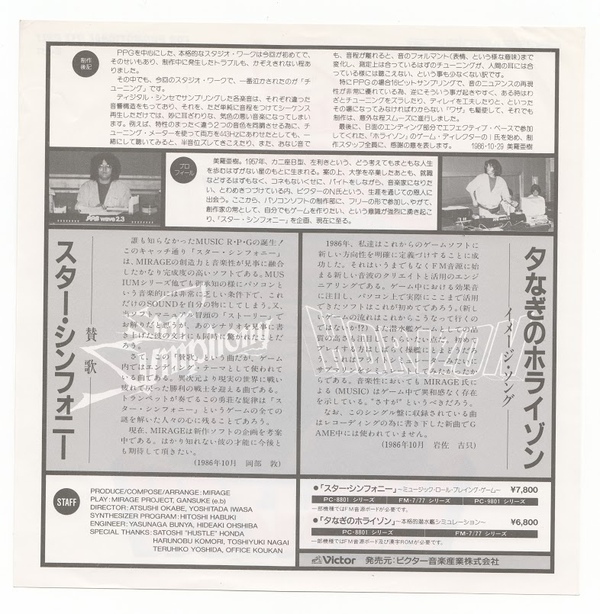 制作後記
PPGを中心にした、本格的なスタジオ・ワークは今回が初めてで、
そのせいもあり、制作中に発生したトラブルも、かぞえきれない程あ
りました。
その中でも、今回のスタジオ・ワークで、一番泣かされたのが「チ
ューニング」です。
ディジタル・シンセでサンプリングした各楽音は、それぞれ違った
音響構造をもっており、それを、ただ単純に音程をつけてシーケンス
再生しただけでは、妙に耳ざわりな、気色の悪い音楽になってしまい
ます。例えば、特性のまったく違う2つの音色を同調させる為に、チ
ューニング・メーターを使って両方を443Hzにあわせたとしても、一
緒にして聴いてみると、半音位ズレてきこえたり、また、おなじ音で
も、音程が離れると、音のフォルマント(表情、という様な意味)まで
変化し、測定上は合っているはずのチューニングが、人間の耳には合
っている様には聴こえない、という事も少なくない訳です。
特にPPGの場合16ビットサンプリングで、音のニュアンスの再現
性が非常に優れている為、逆にそういう事が起きやすく、ある時はわ
ざとチューニングをズラしたり、ディレイを工夫したりと、といった
その癖になってみなければわからない"ワザ"も駆使して、それでも
制作は、意外な程スムーズに進行しました。
最後に、日面のエンディング部分でエフェクティブ・ベースで参加
してくれた、「ホライゾン」のゲーム・ディレクターのI氏を始め、制
作スタッフ全員に、感謝の意を表します。 1986-10-29 美羅亜樹
PPG wave 2.3
プロフィール
美羅亜樹。1957年、カニ座B型、左利きという、どう考えてもまともな人生
を歩むはずがない星のもとに生まれる。案の上、大学を卒業したあとも、就職
などするはずもなく、コネもないくせに、バイトをしながら、音楽家になりた
い、とわめきつづけている内、ビクターのN氏という、生涯を通じての恩人に
出会う。ここから、パソコンソフトの制作部に、フリーの形で参加し、やがて、
創作家の常として、自分でもゲームを作りたい、という意識が強烈に湧き起こ
り、「スター・シンフォニー」を企画、現在に至る。
夕なぎのホライゾン
イメージ・ソング
1986年、私達はこれからのゲームソフトに
新しい方向性を明確に定義づけることに成功
した。それはいうまでもなくFM音源に始
まる新しい音波のクリエイトと活用のエンジ
ニアリングである。ゲーム中における効果音
に注目し、パソコン上で実際にここまで活用で
きたソフトはこれが初めてであろう。(新し
いゲームの流れはこれからこうなって行くの
である。
を示している。"さすが"というべきだろう。
なお、このシングル盤に収録されている曲
はレコーディングの為に書き下した新曲で G
AME中には使われていません。
(1986年10月 岩佐 吉只)
HORIZON
スター・シンフォニー
賛歌
誰も知らなかったMUSIC R・P・Gの誕生!
このキャッチ通り『スター・シンフォニー』
は、MIRAGEの創造力と音楽性が見事に融合
したかなり完成度の高いソフトである。MUS
IUMシリーズ他でご存知の様にパソコンと
いう音楽的には非常に乏しい条件下で、これ
だけのSOUNDを自分の物にしてしまう。又、
トランペットが奏でるこの勇荘な旋律は『ス
ター・シンフォニー』というゲームの全ての
謎を解いた人々の心に残ることであろう。
現在、MIRAGEは新作ソフトの企画を考案
中である。はかり知れない彼の才能に今後と
も期待して頂きたい。
(1986年10月 岡部 敦)
Star Symphony
STAFF
PRODUCE/COMPOSE/ARRANGE: MIRAGE
PLAY: MIRAGE PROJECT, GANSUKE (e.b)
DIRECTOR: ATSUSHI OKABE, YOSHITADA IWASA
SYNTHESIZER PROGRAM: HITOSHI HABUKI
ENGINEER: YASUNAGA BUNYA, HIDEAKI OHSHIBA
SPECIAL THANKS: SATOSHI "HUSTLE" HONDA
HARUNOBU KOMORI, TOSHIYUKI NAGAI
TERUHIKO YOSHIDA, OFFICE KOUKAN
●「スター・シンフォニー」〜ミュージック・ロール・プレイング・ゲーム〜 ¥7,800
PC-8801 シリーズ FM-7/77 シリーズ
一部機種ではFM音源ボードが必要です。
●「夕なぎのホライゾン」〜本格的潜水艦シミュレーション〜 ¥6,800
PC-8801 シリーズ FM-7/77 シリーズ PC-9801 シリーズ
一部機種ではFM音源ボード及び漢字ROMが必要です。
Victor 発売元:ビクター音楽産業株式会社